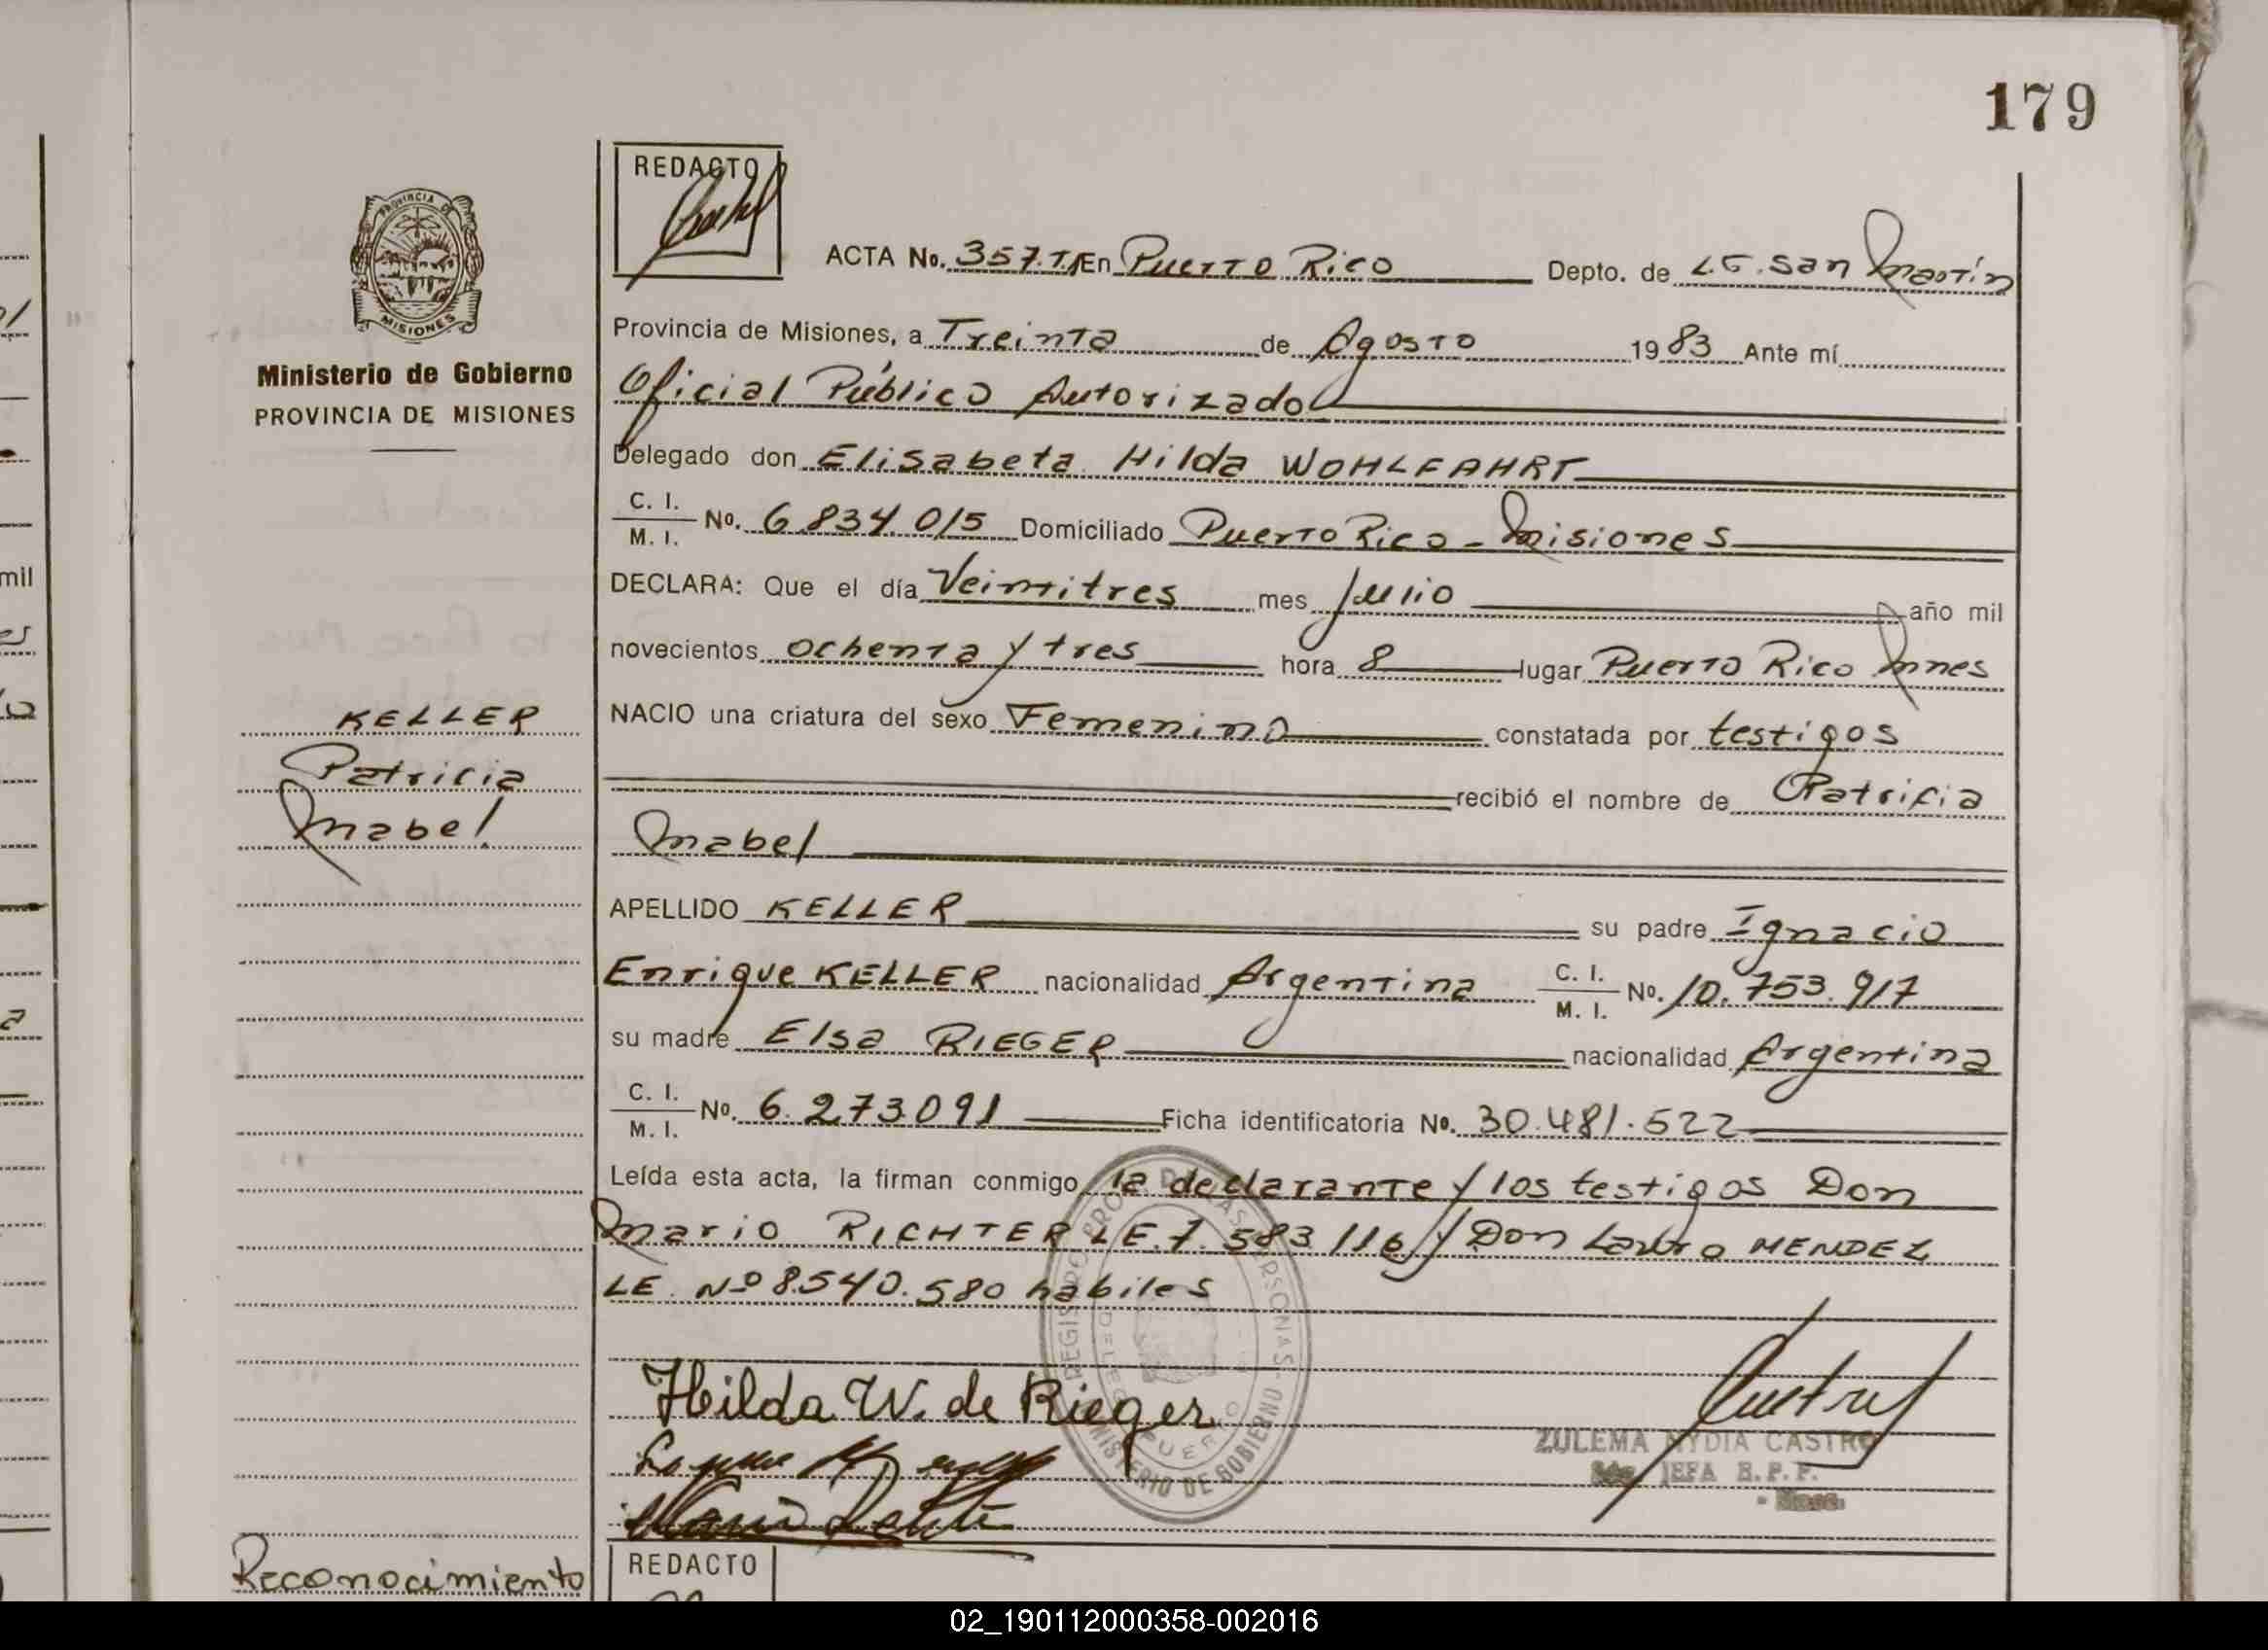 179
REDACTO
PROVINCIA DE
MISIONES
ACTA No. 357.T.I En Puerto Rico Depto. de L.G. San Martín
Provincia de Misiones, a Treinta de Agosto 1983 Ante mí
Ministerio de Gobierno
PROVINCIA DE MISIONES
Oficial Público Autorizado
Delegado don Elisabeta Hilda WOHLFAHRT
C. I.
M. I. No. 6.834.015 Domiciliado Puerto Rico - Misiones
DECLARA: Que el día Veintitres mes Julio año mil
novecientos ochenta y tres hora 8 lugar Puerto Rico Mnes
NACIO una criatura del sexo Femenino constatada por testigos
recibió el nombre de Patricia
Mabel
KELLER
Patricia
Mabel
APELLIDO KELLER su padre Ignacio
Enrique KELLER nacionalidad Argentina C. I. M. I. No. 10.753.917
su madre Elsa RIEGER nacionalidad Argentina
C. I.
M. I. No. 6.273.091 Ficha identificatoria No. 30.481.522
Leída esta acta, la firman conmigo la declarante y los testigos Don
Mario RICHTER LE. 7.583.116 y Don Lauro MENDEZ
LE. Nº 8.540.580 habiles
Hilda W. de Rieger
ZULEMA NYDIA CASTRO
JEFA R.P.P.
MINISTERIO DE GOBIERNO
Reconocimiento
REDACTO
mil
02_190112000358-002016